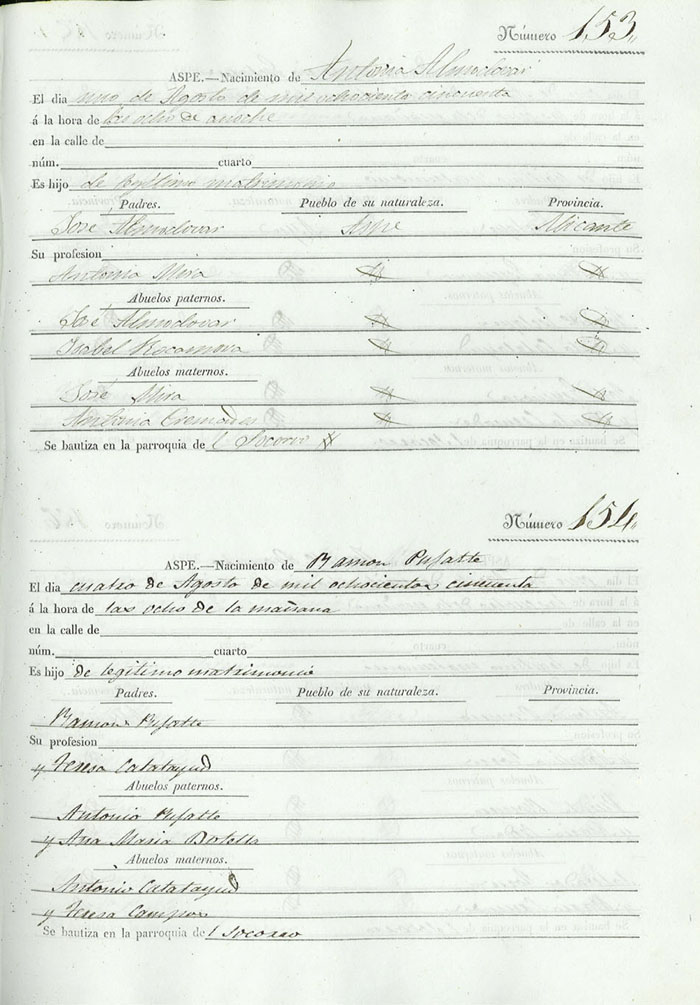 Número 153
ASPE.—Nacimiento de Antonia Almodovar
El dia uno de Agosto de mil ochociento cincuenta
á la hora de las ocho de anoche
en la calle de
núm. cuarto
Es hijo de legitimo matrimonio
Padres. Pueblo de su naturaleza. Provincia.
José Almodovar Aspe Alicante
Su profesion
Antonia Mira
Abuelos paternos.
José Almodovar
Isabel Rocamora
Abuelos maternos.
José Mira
Antonia Cremades
Se bautiza en la parroquia del Socorro
Número 154
ASPE.—Nacimiento de Ramon Pujalte
El dia cuatro de Agosto de mil ochocientos cincuenta
á la hora de las ocho de la mañana
en la calle de
núm. cuarto
Es hijo de legitimo matrimonio
Padres. Pueblo de su naturaleza. Provincia.
Ramon Pujalte
Su profesion
y Teresa Calatayud
Abuelos paternos.
Antonio Pujalte
y Ana Maria Botella
Abuelos maternos.
Antonio Calatayud
y Teresa Campos
Se bautiza en la parroquia del Socorro